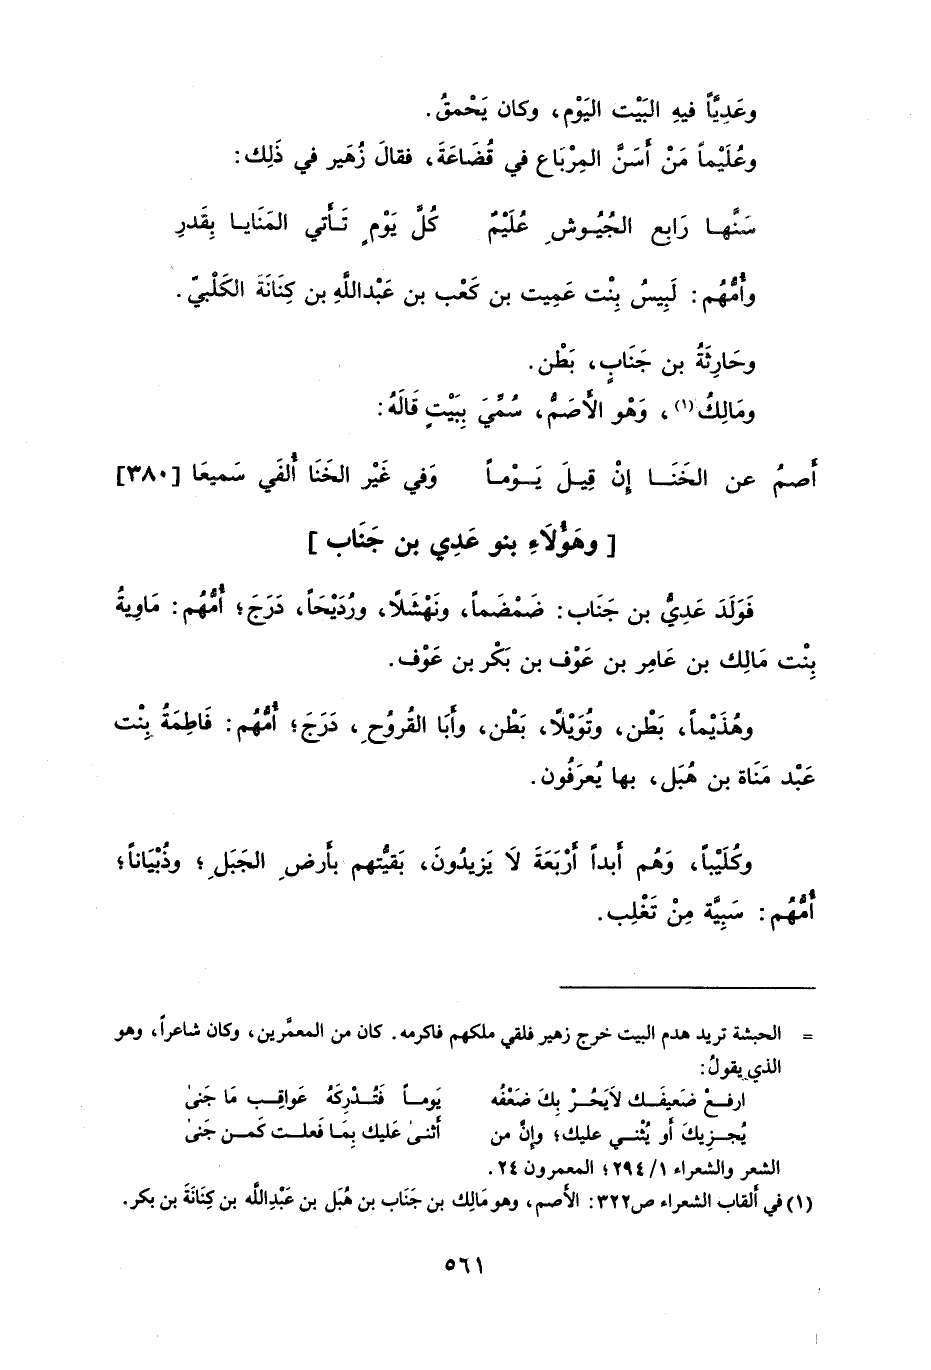 وعَدِيَّاً فيهِ البَيْت اليَوْم، وكان يَحْمقُ.
وعُلَيْماً مَنْ أَسَنَّ المِرْبَاع في قُضَاعَةَ، فقالَ زُهَير في ذَلِك:
سَنَّهـا رَابِع الجُيُـوشِ عُلَيْمٌ كُلَّ يَوْمٍ تَـأتي المَنَايـا بِقَدرِ
وأُمُّهُم: لَبِيسُ بِنْت عَمِيت بن كَعْب بن عَبْداللَّهِ بن كِنَانَةَ الكَلْبيّ.
وحَارِثَةُ بن جَنَابٍ، بَطْن.
ومَالِكُ(١)، وَهْو الأَصَمُّ، سُمِّيَ بِبَيْتٍ قَالَهُ:
أَصمُ عن الخَنَـا إِنْ قِيـلَ يَـوْمـاً وَفي غَيْر الخَنَا أُلفَي سَميعَا [٣٨٠]
[ وهَؤُلاَءِ بنو عَدِي بن جَنَاب ]
فَوَلَدَ عَدِيُّ بن جَنَاب: ضَمْضَماً، ونَهْشَلًا، ورُدَيْحَاً، دَرَجَ؛ أُمُّهُم: مَاوِيةُ
بِنْت مَالِك بن عَامِر بن عَوْف بن بَكْر بن عَوْف.
وهُذَيْماً، بَطْن، وتُوَيْلًا، بَطْن، وأَبَا القُرُوْحِ، دَرَجَ؛ أُمُّهُم: فَاطِمَةُ بِنْت
عَبْد مَنَاة بن هُبَل، بها يُعرَفُون.
وكُلَيْباً، وَهُم أَبداً أَرْبَعَةَ لَا يَزيدُونَ، بَقيَّتهم بأَرضِ الجَبَلِ؛ وذُبْيَاناً؛
أُمُّهُم: سَبِيَّة مِنْ تَغْلِب.
= الحبشة تريد هدم البيت خرج زهير فلقي ملكهم فاكرمه. كان من المعمَّرين، وكان شاعراً، وهو
الذي يقولُ:
ارفـعْ ضَعيفَـك لاَيَحُـرْ بِكَ ضَعْفُه يَومـاً فَتُـدْرِكَهُ عَواقِـب مَا جَنىٰ
يُجـزِيكَ أو يُثنـي عليك؛ وإنَّ من أَثنىٰ عَليك بِمَـا فَعلـت كَمـن جَنىٰ
الشعر والشعراء ١/ ٢٩٤؛ المعمرون ٢٤.
(١) في ألقاب الشعراء ص٣٢٢: الأصم، وهو مَالِك بن جَنَاب بن هُبَل بن عَبْدِاللَّه بن كِنَانَةَ بن بكر.
٥٦١